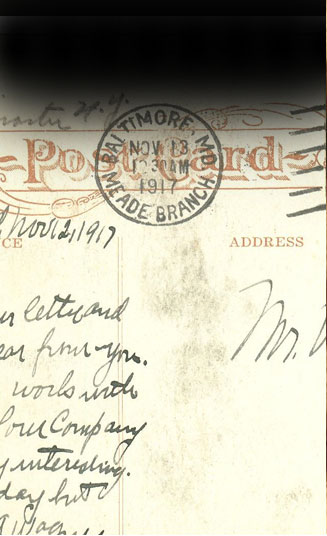 N.Y.
Post Card
BALTIMORE, MD.
NOV 13
12 30 AM
1917
MEADE BRANCH
Nov 12, 1917
CE
ADDRESS
Mr.
letter and
ear from you.
works with
our Company
y interesting.
day but